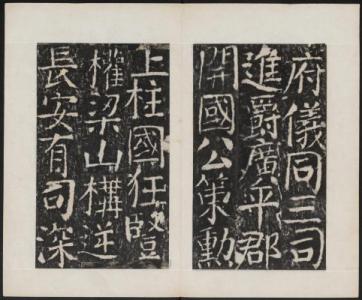 府儀同三司
進爵廣平郡
開國公策勳
上柱國狂豎
權梁山構逆
長安有司深